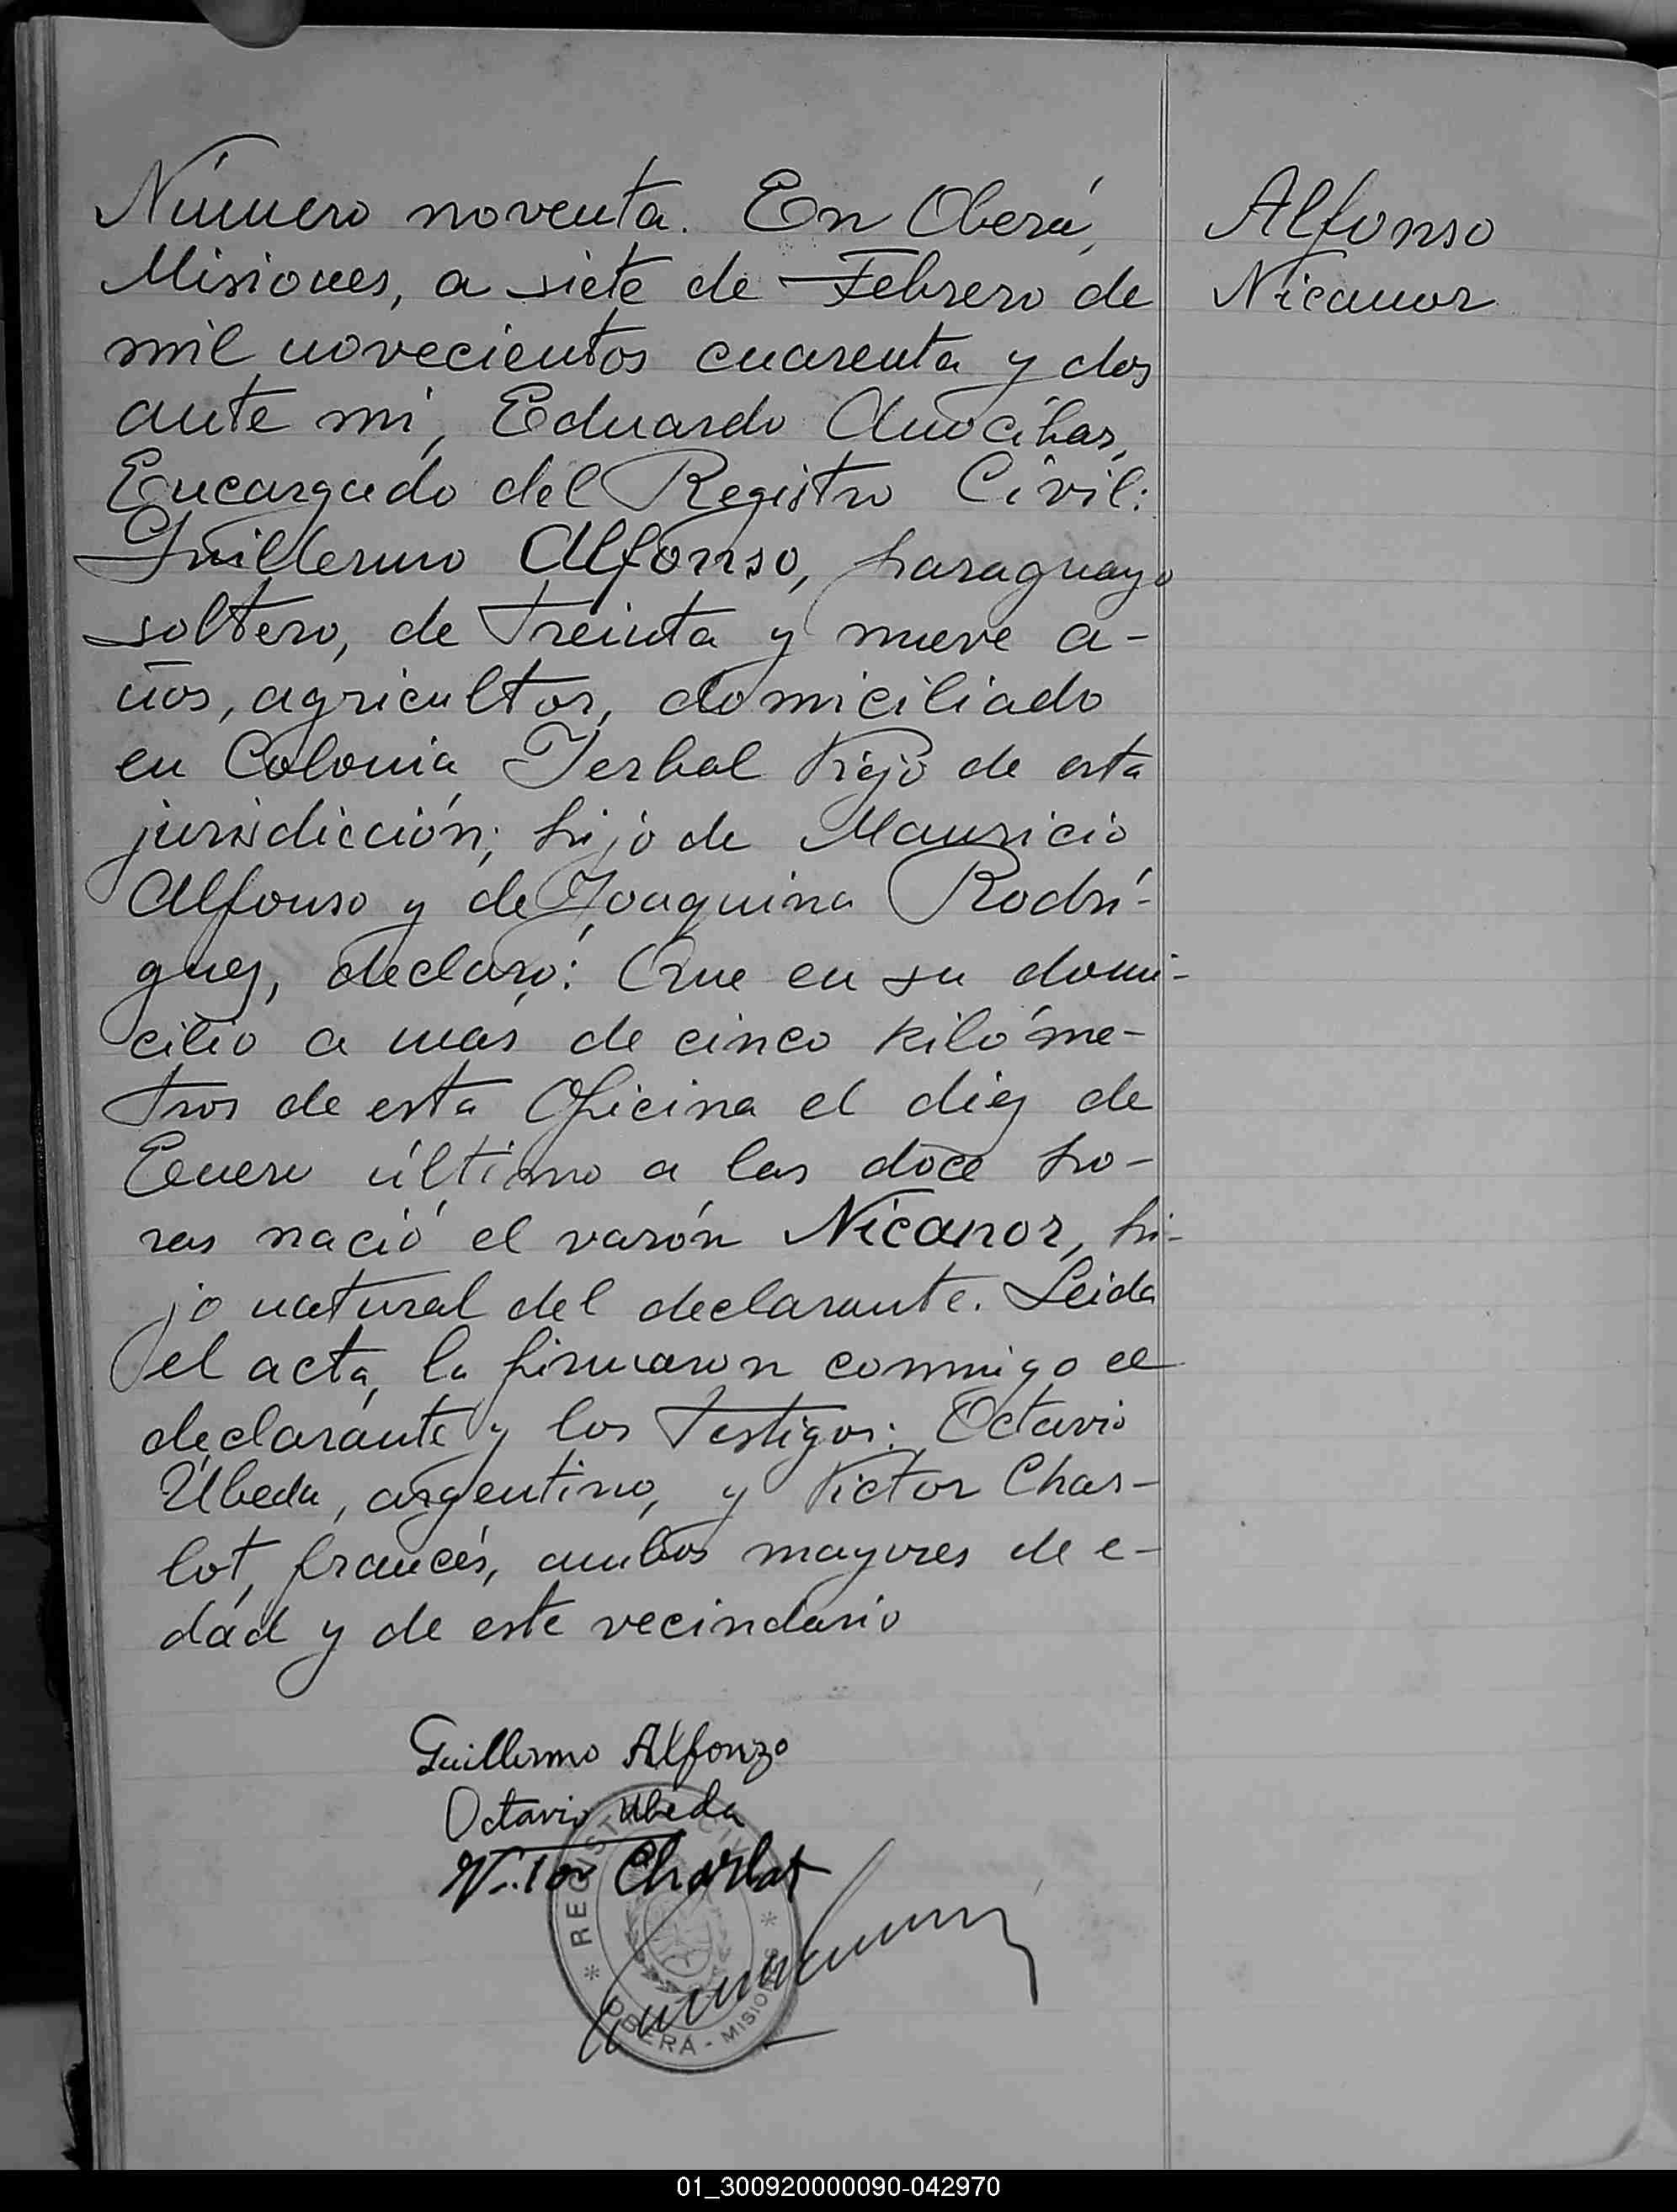 Número noventa. En Oberá,
Misiones, a siete de Febrero de
mil novecientos cuarenta y dos
ante mí, Eduardo
Encargado del Registro Civil:
Guillermo Alfonso, paraguayo
soltero, de treinta y nueve a-
ños, agricultor, domiciliado
en Colonia Yerbal Viejo de esta
jurisdicción; hijo de Mauricio
Alfonso y de Joaquina Rodrí-
guez, declaró: Que en su domi-
cilio a más de cinco kilóme-
tros de esta Oficina el diez de
Enero último a las doce ho-
ras nació el varón Nicanor, hi-
jo natural del declarante. Leida
el acta, la firmaron conmigo el
declarante y los testigos: Octavio
Úbeda, argentino, y Victor Char-
lot, francés, ambos mayores de e-
dad y de este vecindario
Alfonso
Nicanor
Guillermo Alfonzo
Octavio Ubeda
Victor Charlot
REGISTRO CIVIL
OBERÁ - MISIONES
01_300920000090-042970